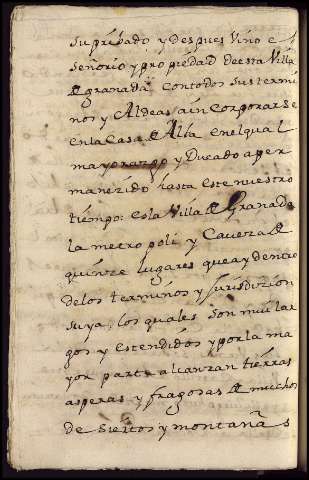 su pribado y despues vino e l
señorio y propiedad de esta Villa
de granada con todos sus termi
nos y Aldeas a incorporarse
en la Casa de Alía en el qual
mayorazgo y Ducado a per
manezido hasta este nuestro
tiempo: es la Villa de Granada
la metropoli y Caveza de
quinze lugares que ay dentro
de los terminos y jurisdizion
suya, los quales son mui lar
gos y estendidos y por la ma
yor parte alcanzan tierras
asperas y fragosas de muchos
desiertos y montañas